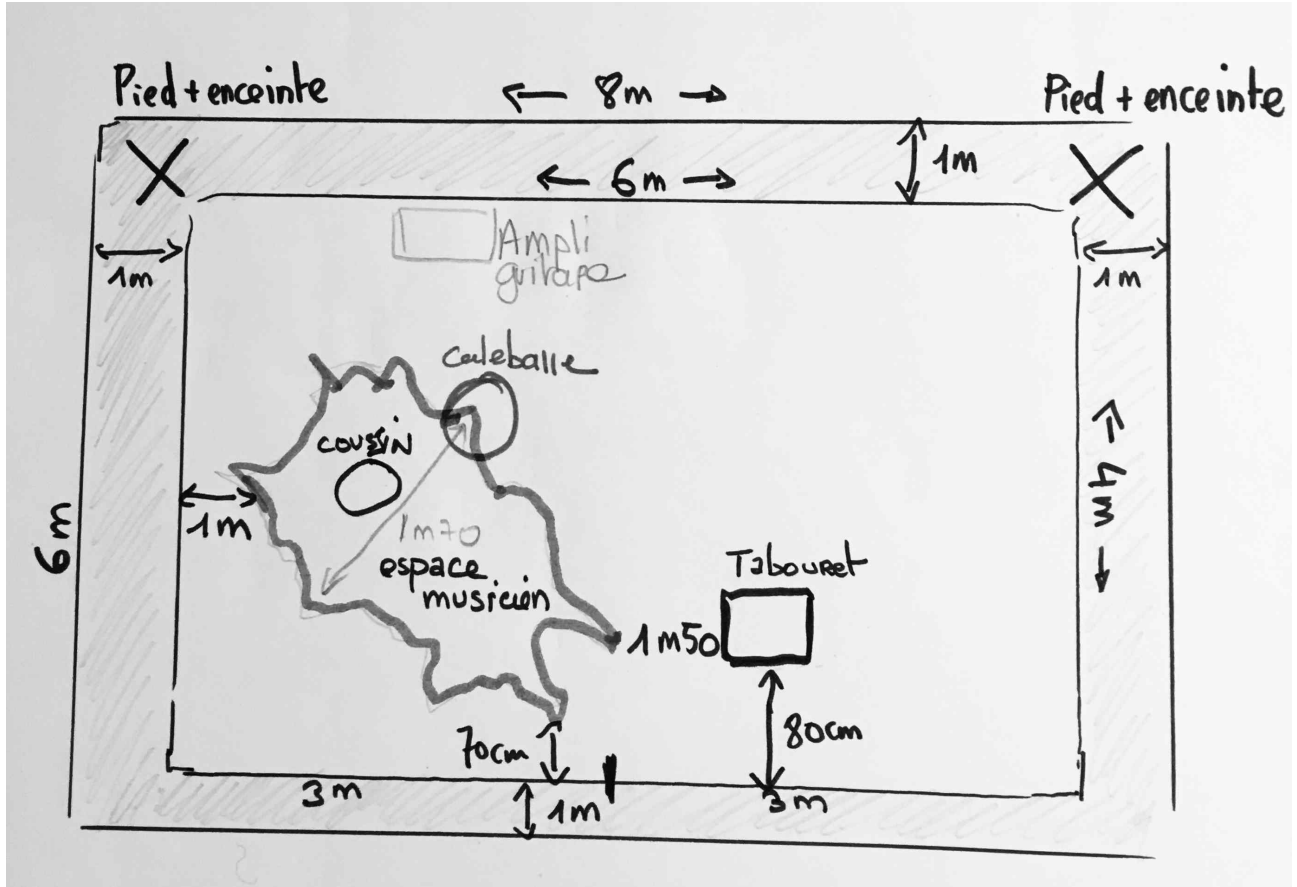 Pied + enceinte
8m
Pied + enceinte
1m
6m
Ampli
guitare
1m
1m
Calebasse
coussin
1m
1m70
espace
musicien
4m
6m
Tabouret
1m50
70cm
80cm
3m
1m
3m